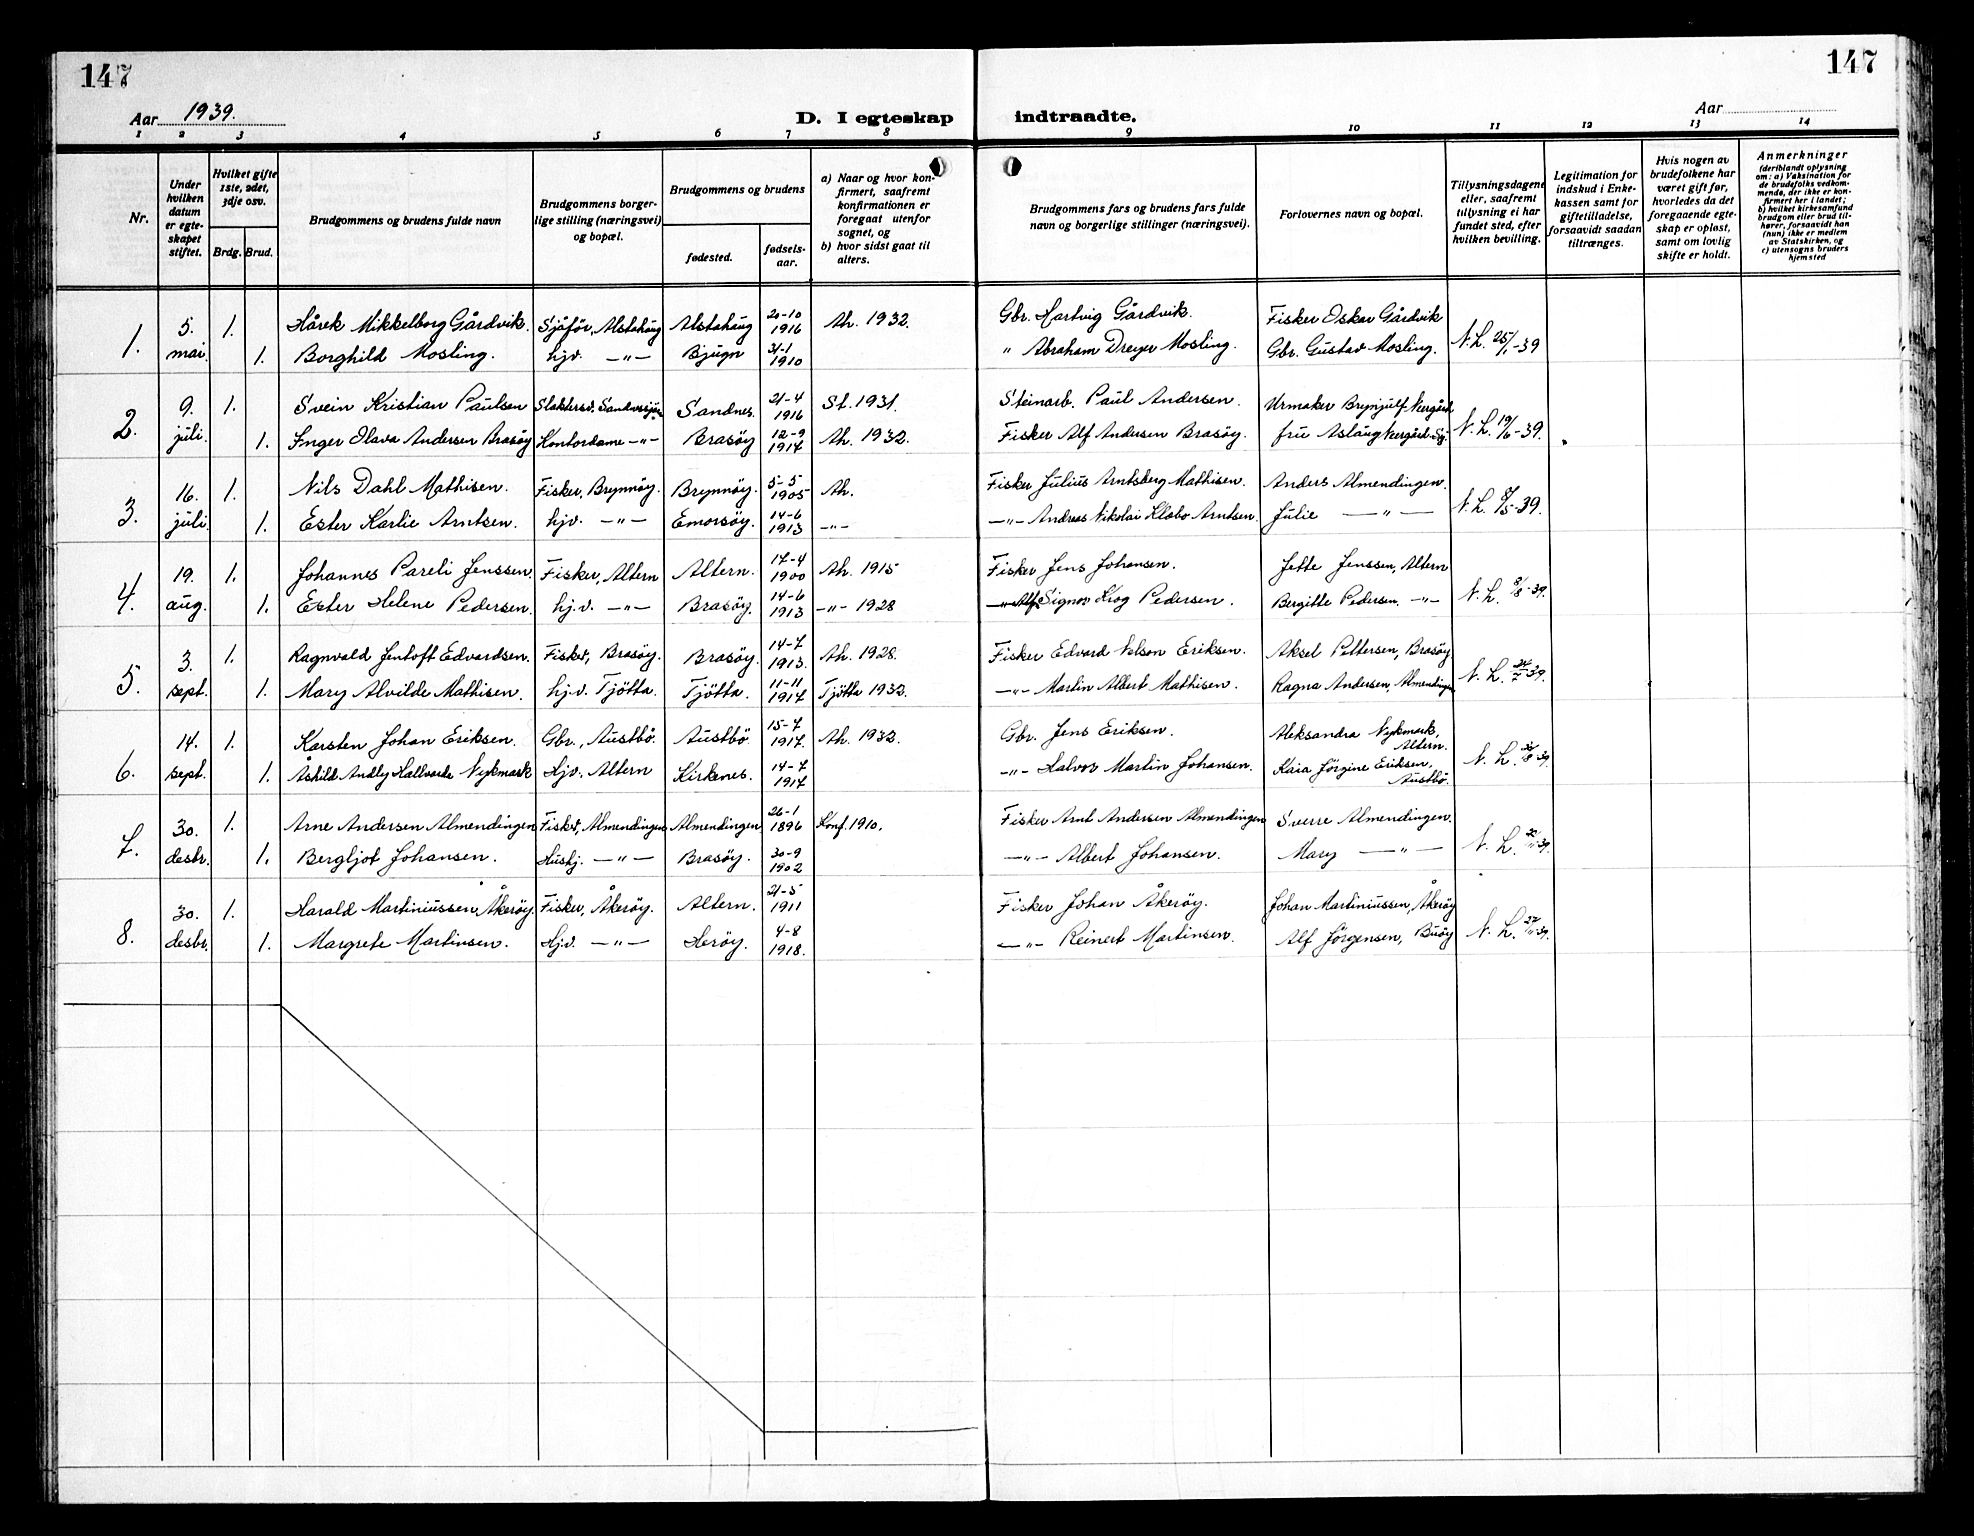 147
147
Aar 1939.
D. I egteskap indtraadte.
Aar
1 2 3 4 5 6 7 8 9 10 11 12 13 14
Nr.
Under hvilken datum er egteskapet stiftet.
Hvilket gifte 1ste, 2det, 3dje osv.
Brdg. Brud.
Brudgommens og brudens fulde navn
Brudgommens borgerlige stilling (næringsvei) og bopæl.
Brudgommens og brudens
fødested.
fødselsaar.
a) Naar og hvor konfirmert, saafremt konfirmationen er foregaat utenfor sognet, og
b) hvor sidst gaat til alters.
Brudgommens fars og brudens fars fulde navn og borgerlige stillinger (næringsvei).
Forlovernes navn og bopæl.
Tillysningsdagene eller, saafremt tillysning ei har fundet sted, efter hvilken bevilling.
Legitimation for indskud i Enkekassen samt for giftetilladelse, forsaavidt saadan tiltrænges.
Hvis nogen av brudefolkene har været gift før, hvorledes da det foregaaende egteskap er opløst, samt om lovlig skifte er holdt.
Anmerkninger (deriblandt oplysning om: a) Vaksination for de brudefolks vedkommende, der ikke er konfirmert her i landet; b) hvilket kirkesamfund brudgom eller brud tilhører, forsaavidt han (hun) ikke er medlem av Statskirken, og c) utensogns bruders hjemsted
1. 5. mai. 1. Hårek Mikkelborg Gårdvik. Sjåfør, Alstahaug Alstahaug 20-10 1916 Ah. 1932. Gbr. Hartvig Gårdvik. Fisker Oskar Gårdvik
1. Borghild Mosling. hjv. —"— Bjugn 31-1 1910 " Abraham Dreyer Mosling. Gbr. Gustav Mosling. N. L. 25/1-39
2. 9. juli. 1. Svein Kristian Paulsen Slaktersv. Sandnessjøen Sandnes. 21-4 1916 St. 1931. Steinarb. Paul Andersen. Urmaker Brynjulf Neergård
1. Inger Olava Andersen Brasöy Kontordame —"— Brasöy 12-9 1914 Ah. 1932. Fisker Alf Andersen Brasöy. fru Aslaug Neergård Ssj. N. L. 19/6-39.
3. 16. juli. 1. Nils Dahl Mathisen. Fisker, Brynnöy. Brynnöy. 5-5 1905 Ah. Fisker Julius Arntsberg Mathisen. Anders Almendingen.
1. Ester Karlie Arntsen. hjv. —"— Emorsöy. 14-6 1913 —"— —"— Andreas Nikolai Klabo Arntsen. Julie —"— N. L. /5-39.
4. 19. aug. 1. Johannes Pareli Jenssen. Fisker, Altern Altern. 17-4 1900 Ah. 1915 Fisker Jens Johansen. Jette Jenssen, Altern
1. Ester Helene Pedersen. hj.v. —"— Brasöy. 14-6 1913 —"— 1928 —"— Signor Krog Pedersen. Bergitte Pedersen. —"— N. L. 8/8-39.
5. 3. sept. 1. Ragnvald Jentoft Edvardsen. Fisker, Brasöy. Brasöy. 14-7 1913. Ah. 1928. Fisker Edvard Nelson Eriksen. Aksel Pettersen, Brasöy
1. Mary Alvilde Mathisen. hj.v. Tjötta. Tjötta. 11-11 1914 Tjötta 1932. —"— Martin Albert Mathisen. Ragna Andersen, Almendingen N. L. 24/7-39.
6. 14. sept. 1. Karsten Johan Eriksen. Gbr., Austbö. Austbö 15-7 1917. Ah. 1932. Gbr. Jens Eriksen. Aleksandra Nykmark, Altern.
1. Åshild Andly Hallvarda Nykmark Hjv. Altern Kirkenes. 14-7 1914 —"— Halvor Martin Johansen. Kaia Jörgine Eriksen, Austbö. N. L. /8-39.
7. 30. desbr. 1. Arne Andersen Almendingen Fisker, Almendingen Almendingen 26-1 1896 Konf. 1910. Fisker Arnt Andersen Almendingen Sverre Almendingen.
1. Bergljot Johansen. Hushj. —"— Brasöy. 30-9 1902 —"— Albert Johansen. Mary —"— N. L. /11-39.
8. 30. desbr. 1. Harald Martiniussen Åkeröy. Fisker, Åkeröy. Altern. 21-5 1911 Fisker Johan Åkeröy. Johan Martiniussen, Åkeröy
1. Margrete Martinsen. Hjv. —"— Heröy. 4-8 1918. —"— Reinert Martinsen. Alf Jörgensen, Buöy N. L. 27/11-39.